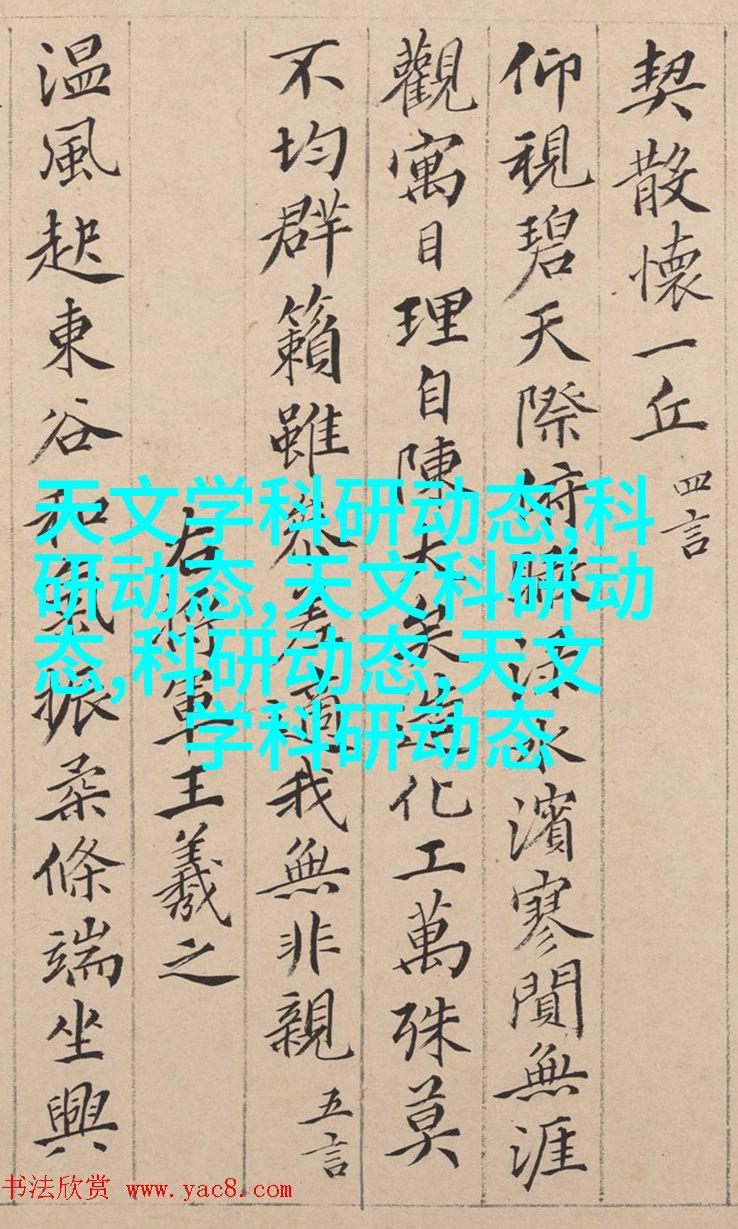 契散懷一丘 四言
仰視碧天際俯瞰淥水濱寥閴無涯
觀寓目理自陳大矣造化工萬殊莫
不均群籟雖參差適我無非親 五言
右將軍王羲之
温風起東谷和氣振柔條端坐興
天文学科研动态,科
研动态,天文科研动
态,科研动态,天文
学科研动态
书法欣赏 www.yac8.com